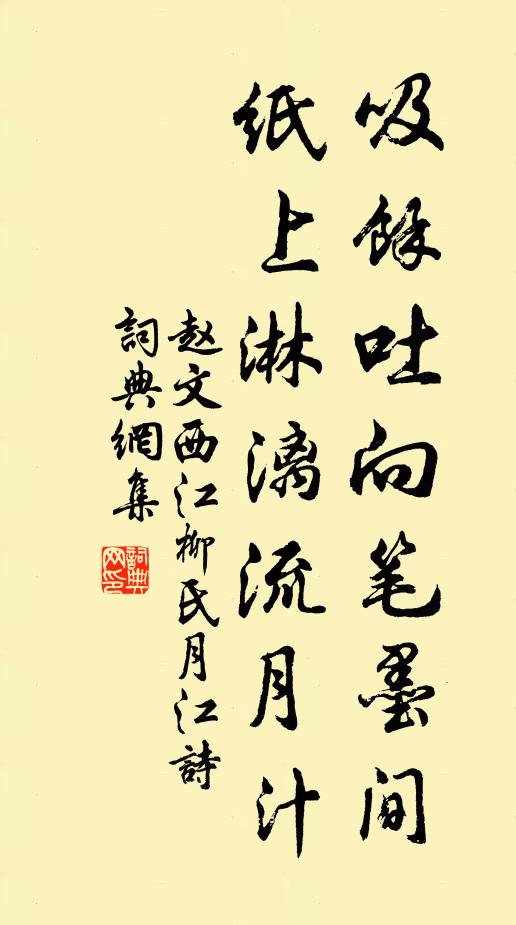 吸餘吐向笔墨间
纸上淋漓流月汁
赵文西江柳氏月江詩
詞典網集
詞典
网印